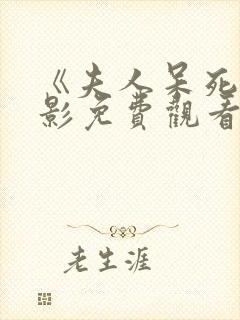 《夫人呆死
影免費觀看
老生涯